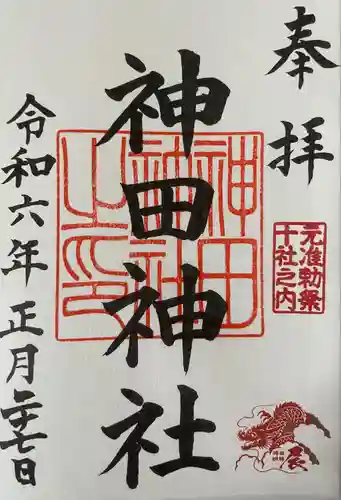 奉拝
元准勅祭
十社之内
神田神社
神田
神社
之印
辰
令和六年正月二十七日